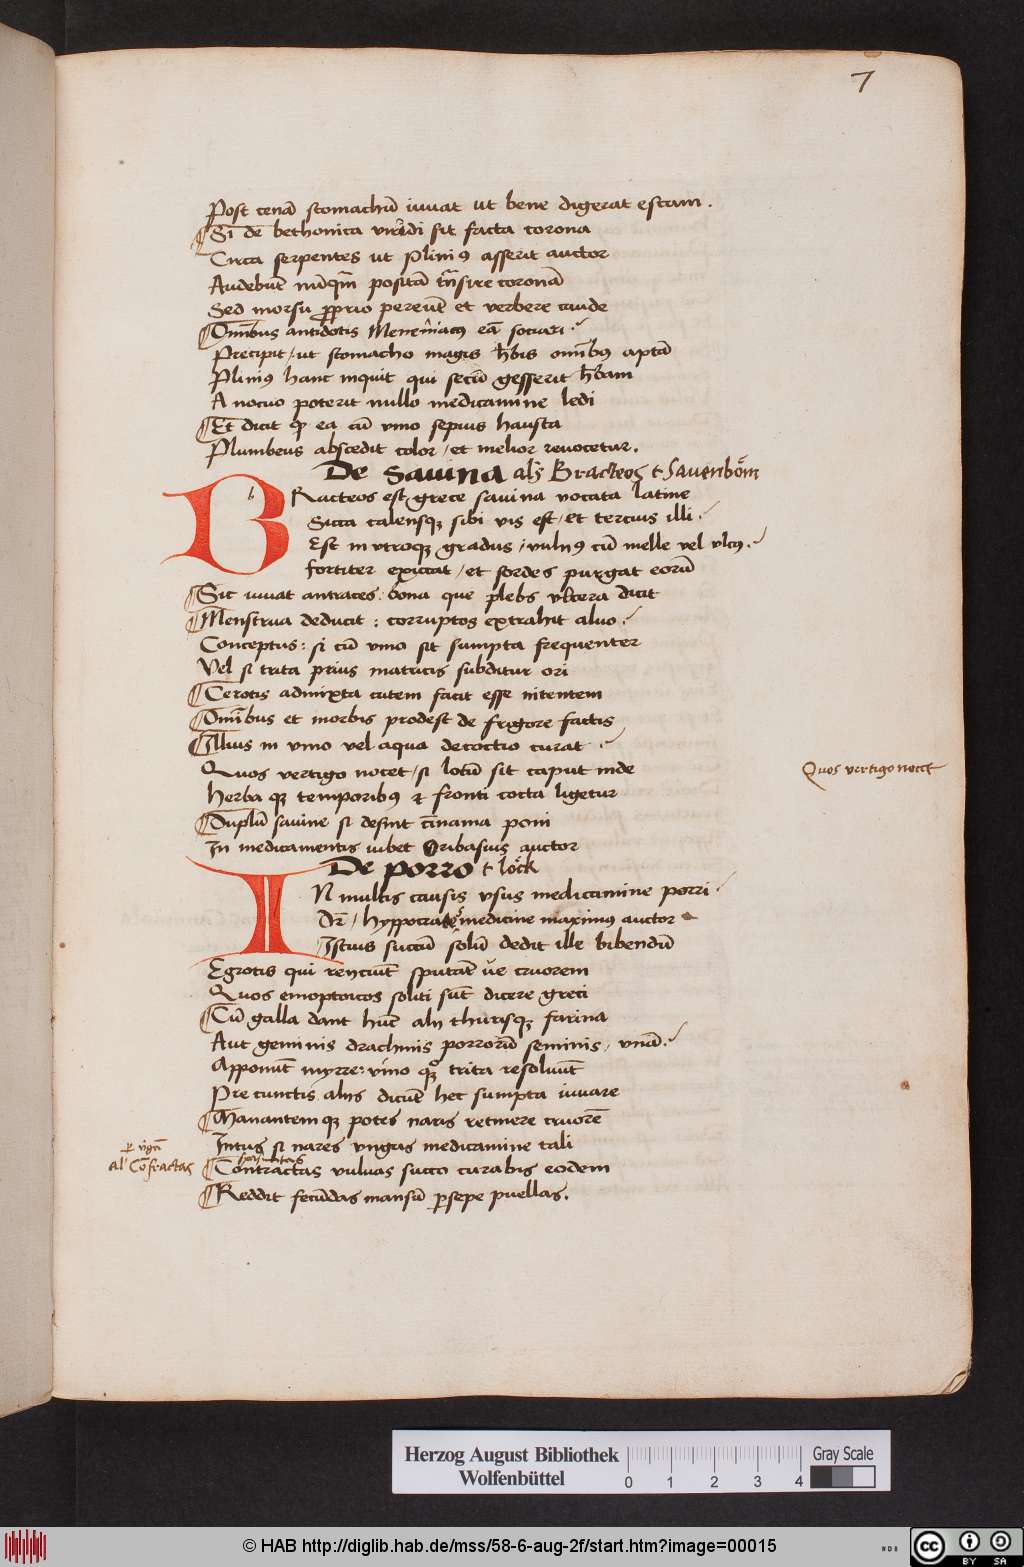 7
Post cenā stomachū iuvat ut bene digerat escam.
Si de bethonica viridi sit facta corona
Circa serpentes ut Pliniꝰ asserit auctor
Audebūt nūqm̄ positā trānsire coronā
Sed morsu proprio pereūt et verbere caude
Omībus antidotis Menemacus eā sociari
Precipit / ut stomacho magis h̄bis omībꝰ aptā
Pliniꝰ hanc inquit qui secū gesserit h̄bam
A nocuo poterit nullo medicamine ledi
Et dicit ꝙ ea cū vino sepius hausta
Plumbeus abscedit color / et melior revocetur.
De Savina als Bracteos t Sauenbom
b
Racteos est grece savina vocata latine
Sicca calensqꝫ sibi vis est / et tercius illi
Est in utroqꝫ gradus / vulnꝰ cū melle vel ulcꝰ
fortiter exiccat / et sordes purgat eorū
Sic iuvat antraces: bona que plebs ulcera dicit
Menstrua deducit: corruptos extrahit alvo
Conceptus: si cū vino sit sumpta frequenter
Vel si trita prius matricis subditur ori
Cerotis admixta cutem facit esse nitentem
Omībus et morbis prodest de frigore factis
Illius in vino vel aqua decoctio curat
Quos vertigo nocet / si lotū sit caput inde
Quos vertigo nocet
herba qꝫ temporibꝰ et fronti cocta ligetur
Duplū savine si desint cīnama poni
In medicamentis iubet Oribasius auctor
De porro t lock
IN multis causis usus medicamine porri
Dr̄ / hyppocrates medicine maximus auctor
Istius succū solū dedit ille bibendū
Egrotis qui reiciūt sputāt ve cruorem
Quos emoptoicos soliti sūt dicere greci
Cū galla dant hūc alij thurisqꝫ farina
Aut geminis drachmis porrorū seminis / unā
Apponūt myrre: vino qꝫ trita resolvūt
Pre cunctis alijs dicūt hec sumpta iuvare
Manantem qꝫ potes naris retinere cruorē
Intus si nares ungas medicamine tali
al' Cōfractas
Contractas vulvas succo curabis eodem
Reddit fecūdas mansū persepe puellas.
Herzog August Bibliothek
Wolfenbüttel
0 1 2 3 4
Gray Scale
© HAB http://diglib.hab.de/mss/58-6-aug-2f/start.htm?image=00015
cc BY SA